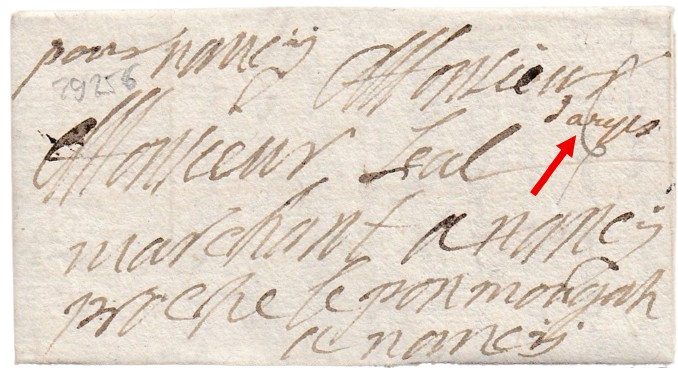 pour nancij Monsieur
29256
Daryes
Monsieur Leal
marchant a nancij
proche le pon mougah
a nancij